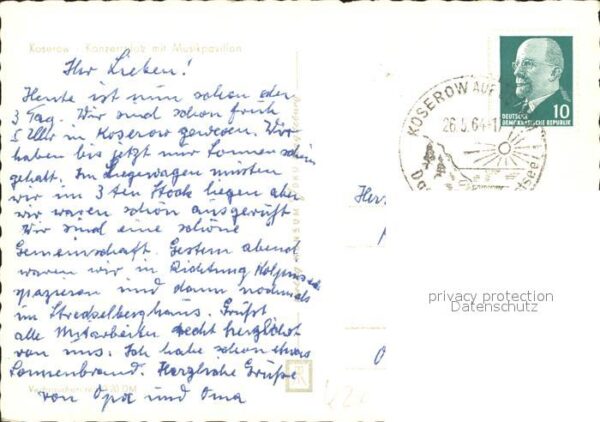 Koserow - Konzertplatz mit Musikpavillon
Ihr Lieben!
Heute ist nun schon der
3 Tag. Wir sind schon früh
5 Uhr in Koserow gewesen. Wir
haben bis jetzt nur Sonnenschein
gehabt. Im Liegewagen mussten
wir im 3ten Stock liegen aber
wir waren schön ausgeruht
Wir sind eine schöne
Gemeinschaft. Gestern abend
waren wir in Richtung Kölpinsee
spazieren und dann nochmals
im Streckelberghaus. Grüßt
alle Mitarbeiter recht herzlichst
von uns. Ich habe schon etwas
Sonnenbrand. Herzliche Grüße
von Opa und Oma
KOSEROW AUF
26.5.64-1
DEUTSCHE
DEMOKRATISCHE REPUBLIK
10
privacy protection
Datenschutz